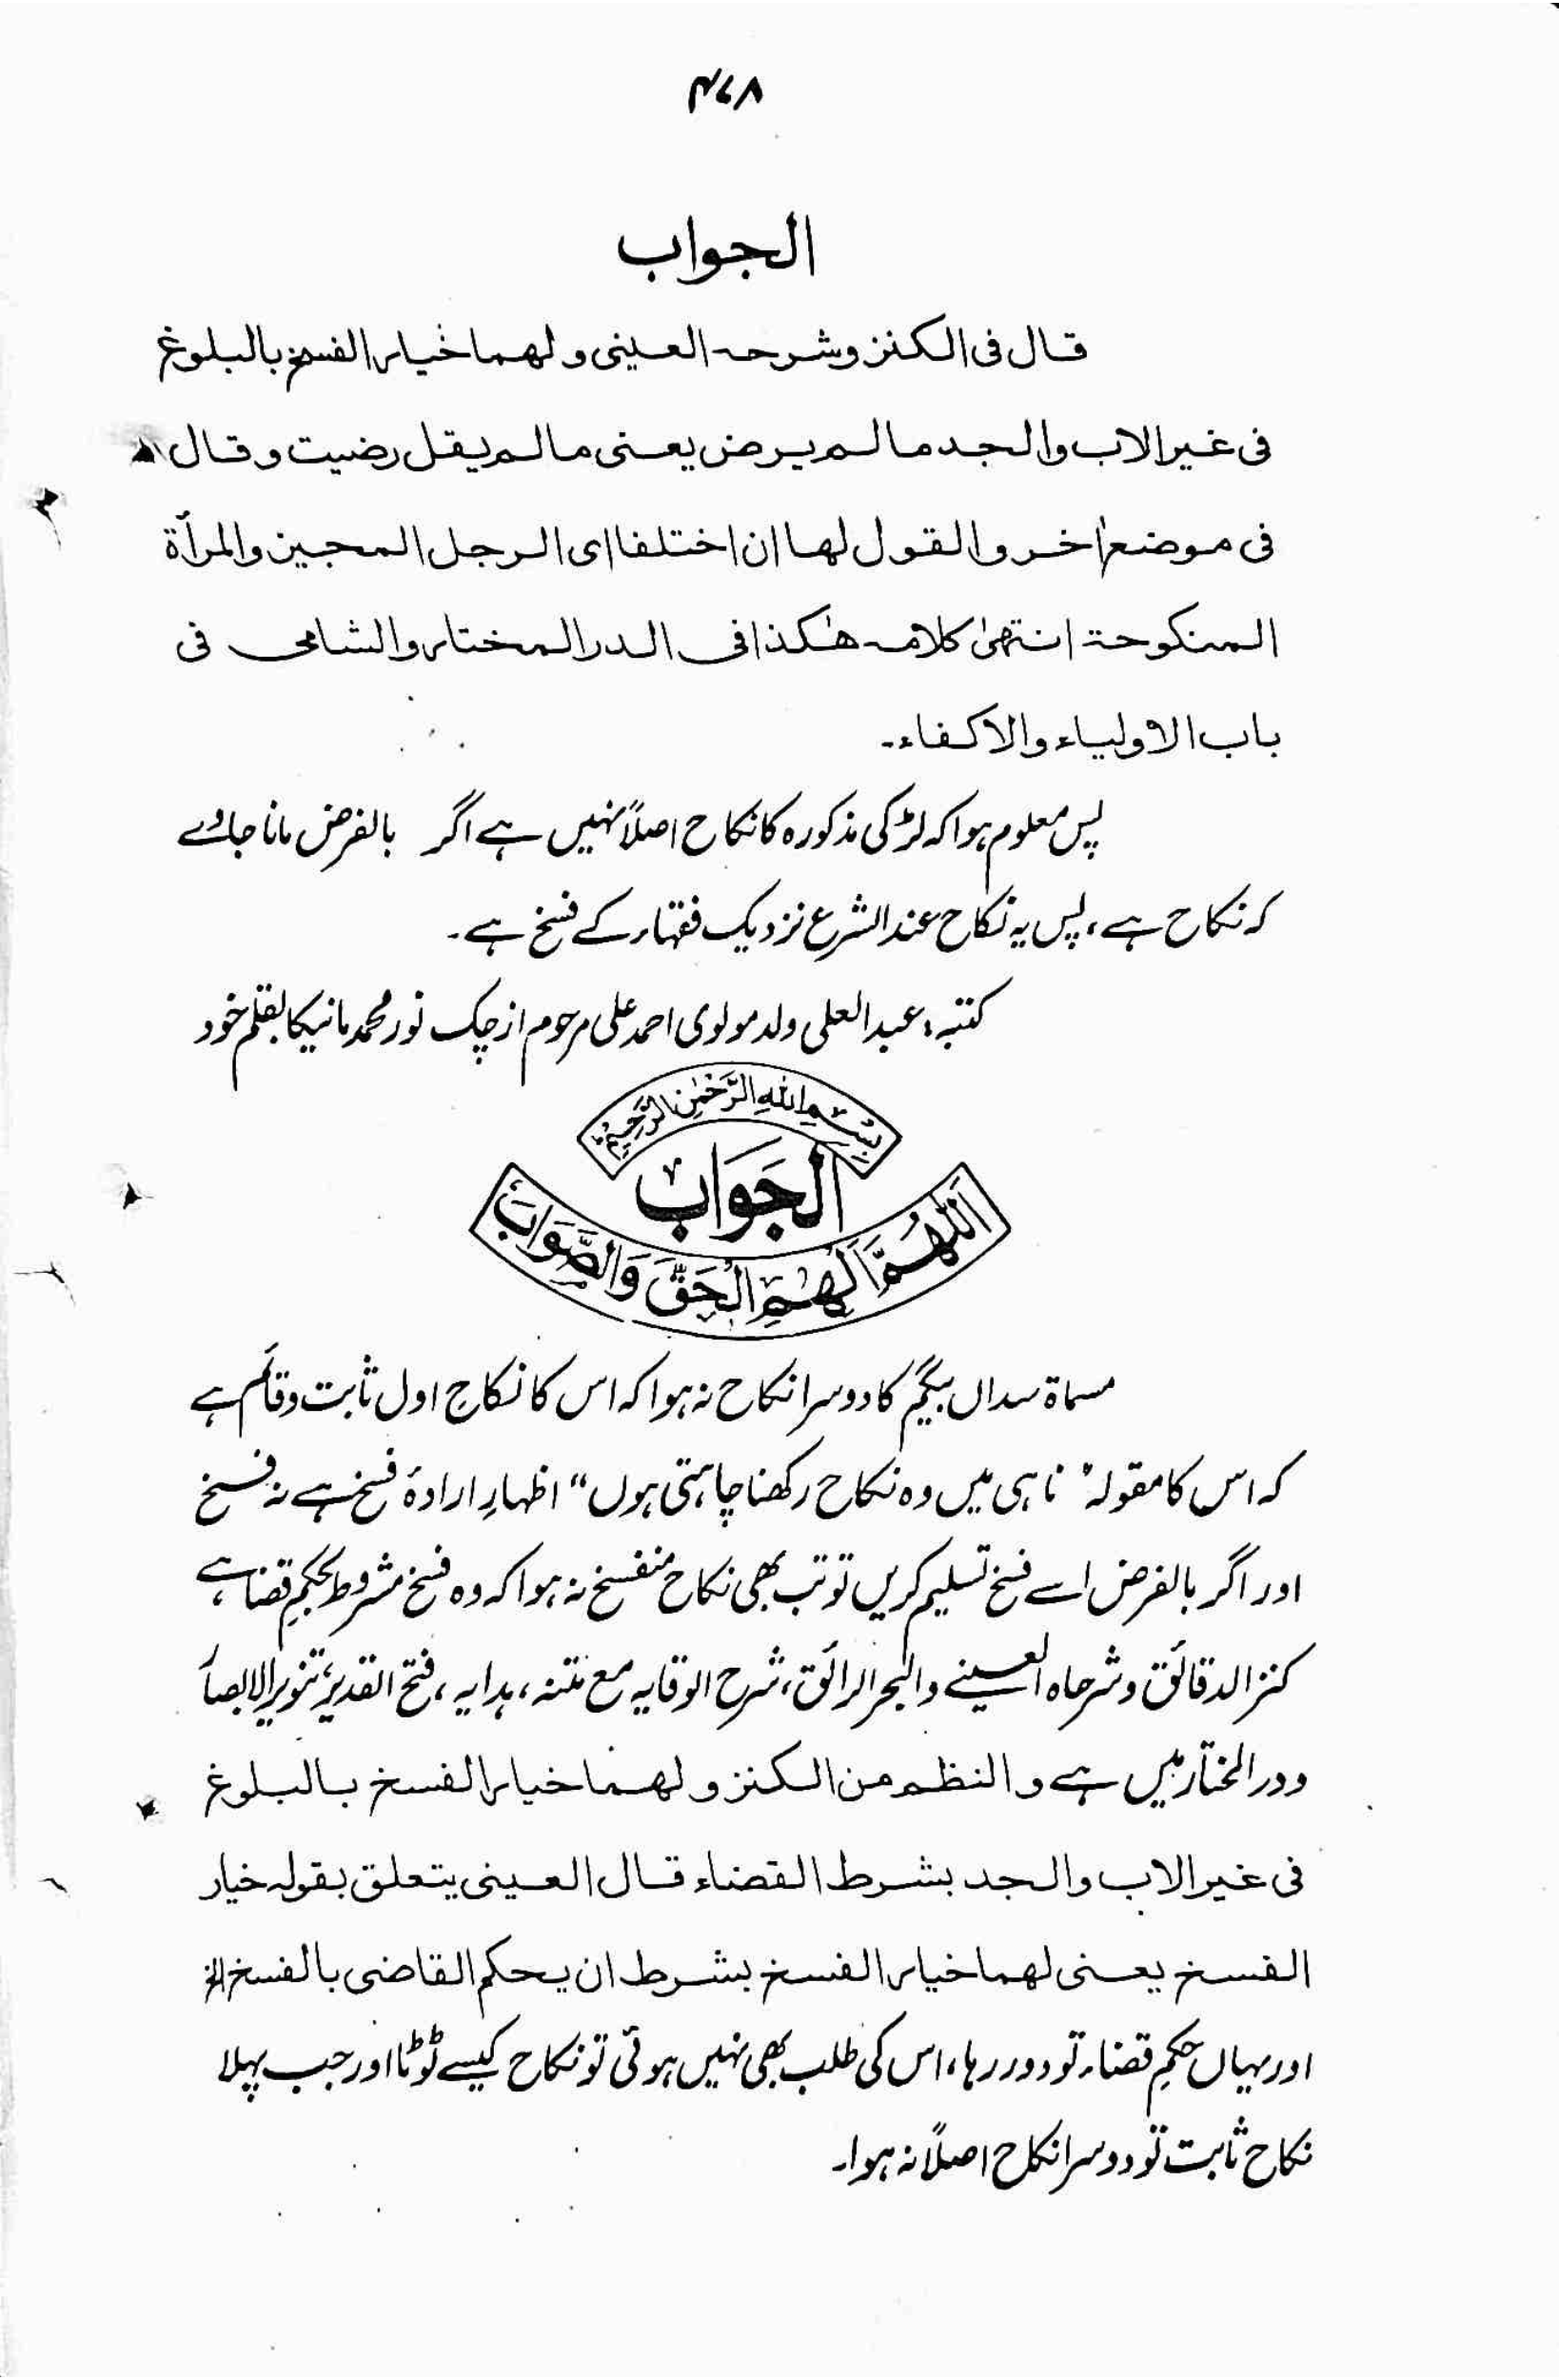 ۴۷۸
الجواب
قال فی الکنز وشرحہ العینی ولھما خیار الفسخ بالبلوغ
فی غیر الاب والجد مالم یرض یعنی مالم یقل رضیت وقال
فی موضع اٰخر والقول لھا ان اختلفا ای الرجل المجیز والمرأۃ
المنکوحۃ انتھیٰ کلامہ ھٰکذا فی الدر المختار والشامی فی
باب الاولیاء والاکفاء۔
پس معلوم ہوا کہ لڑکی مذکورہ کا نکاح اصلاً نہیں ہے اگر بالفرض مانا جاوے
کہ نکاح ہے، پس یہ نکاح عند الشرع نزدیک فقہاء کے فسخ ہے۔
کتبہ: عبدالعلی ولد مولوی احمد علی مرحوم از چک نور محمد مانیکا بقلم خود
بِسْمِ اللّٰہِ الرَّحْمٰنِ الرَّحِیْمِ
اَلجَوَاب
اَللّٰھُمَّ اَلْھِمِ الْحَقَّ وَالصَّوَابَ
مسماۃ سداں بیگم کا دوسرا نکاح نہ ہوا کہ اس کا نکاحِ اول ثابت و قائم ہے
کہ اس کا مقولہ "نا ہی میں وہ نکاح رکھنا چاہتی ہوں" اظہارِ ارادۂ فسخ ہے نہ فسخ
اور اگر بالفرض اسے فسخ تسلیم کریں تو تب بھی نکاح منفسخ نہ ہوا کہ وہ فسخ مشروط بحکمِ قضا ہے
کنز الدقائق و شرحاہ العینے والبحر الرائق، شرح الوقایہ مع متنہ، ہدایہ، فتح القدیر، تنویر الابصار
و در المختار میں ہے والنظم من الکنز ولھما خیار الفسخ بالبلوغ
فی غیر الاب والجد بشرط القضاء قال العینی یتعلق بقولہ خیار
الفسخ یعنی لھما خیار الفسخ بشرط ان یحکم القاضی بالفسخ الخ
اور یہاں حکمِ قضاء تو دور رہا، اس کی طلب بھی نہیں ہوئی تو نکاح کیسے ٹوٹا اور جب پہلا
نکاح ثابت تو دوسرا نکاح اصلاً نہ ہوا۔